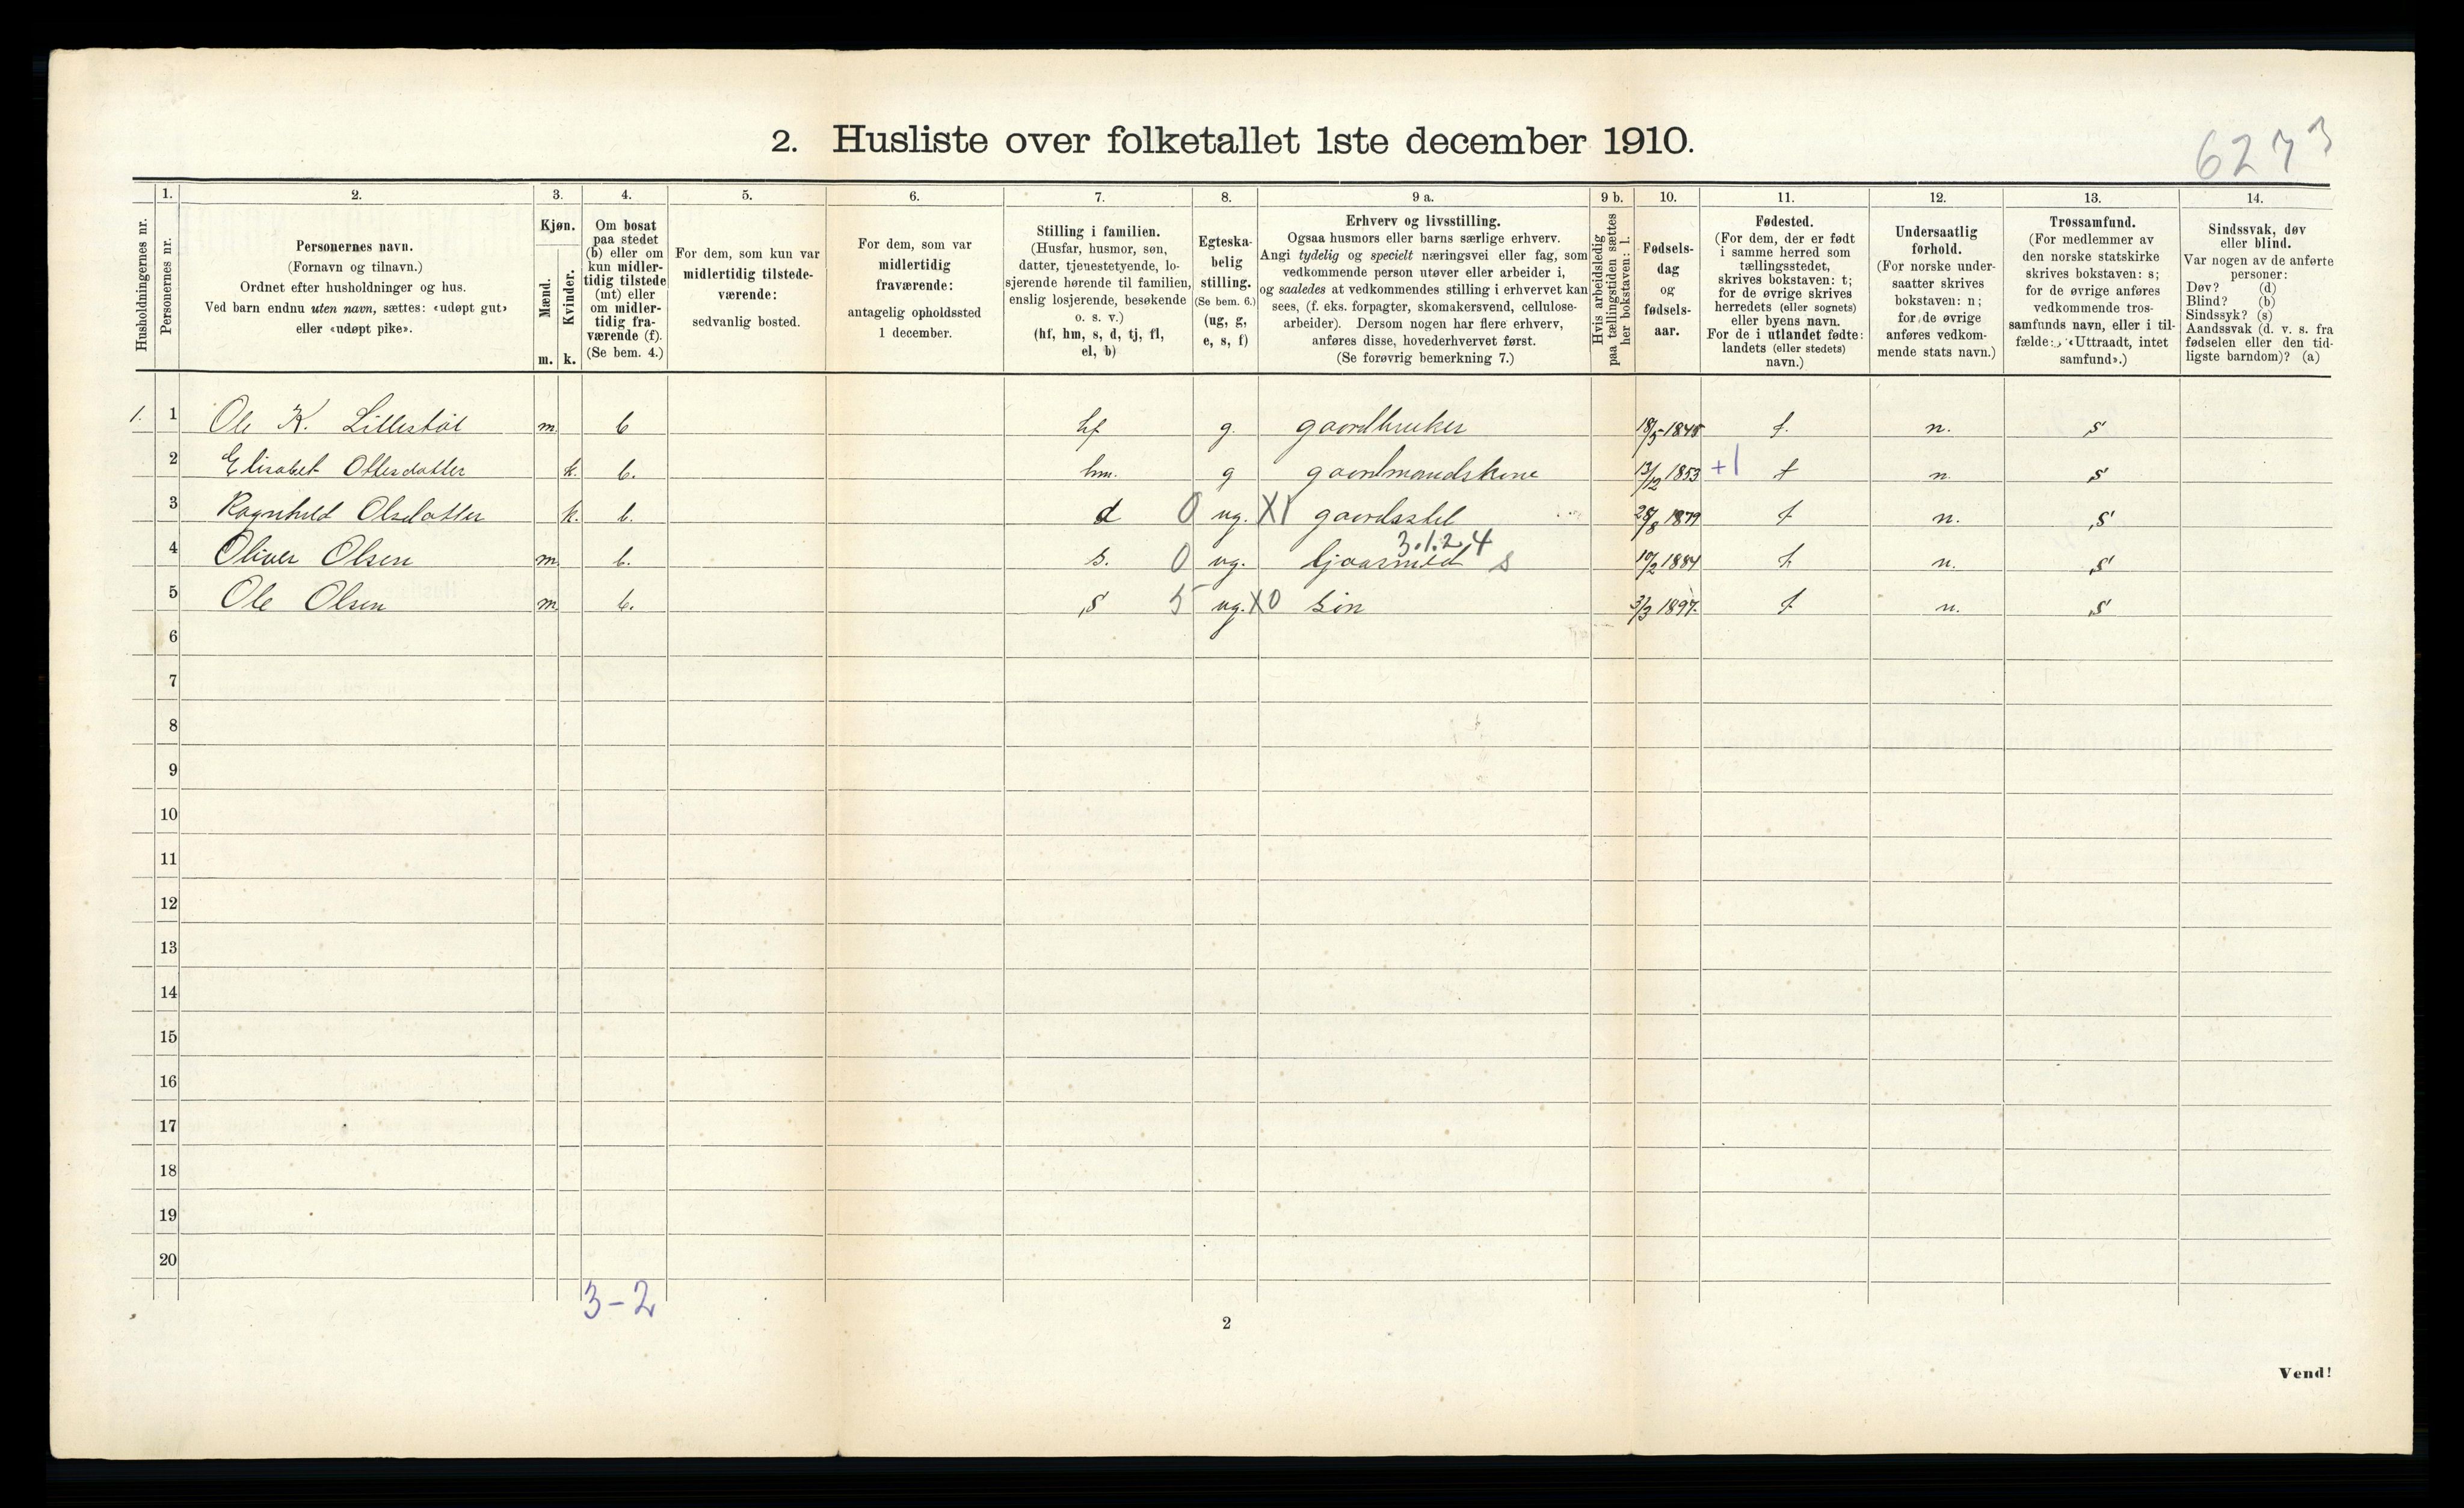 2. Husliste over folketallet 1ste december 1910.
6273
Husholdningernes nr.
1.
Personernes nr.
2.
Personernes navn.
(Fornavn og tilnavn.)
Ordnet efter husholdninger og hus.
Ved barn endnu uten navn, sættes: «udøpt gut»
eller «udøpt pike».
3.
Kjøn.
Mænd.
m.
Kvinder.
k.
4.
Om bosat
paa stedet
(b) eller om
kun midler-
tidig tilstede
(mt) eller
om midler-
tidig fra-
værende (f).
(Se bem. 4.)
5.
For dem, som kun var
midlertidig tilstede-
værende:
sedvanlig bosted.
6.
For dem, som var
midlertidig
fraværende:
antagelig opholdssted
1 december.
7.
Stilling i familien.
(Husfar, husmor, søn,
datter, tjenestetyende, lo-
sjerende hørende til familien,
enslig losjerende, besøkende
o. s. v.)
(hf, hm, s, d, tj, fl,
el, b)
8.
Egteska-
belig
stilling.
(Se bem. 6.)
(ug, g,
e, s, f)
9 a.
Erhverv og livsstilling.
Ogsaa husmors eller barns særlige erhverv.
Angi tydelig og specielt næringsvei eller fag, som
vedkommende person utøver eller arbeider i,
og saaledes at vedkommendes stilling i erhvervet kan
sees, (f. eks. forpagter, skomakersvend, cellulose-
arbeider). Dersom nogen har flere erhverv,
anføres disse, hovederhvervet først.
(Se forøvrig bemerkning 7.)
9 b.
Hvis arbeidsledig
paa tællingstiden sættes
her bokstaven: l.
10.
Fødsels-
dag
og
fødsels-
aar.
11.
Fødested.
(For dem, der er født
i samme herred som
tællingsstedet,
skrives bokstaven: t;
for de øvrige skrives
herredets (eller sognets)
eller byens navn.
For de i utlandet fødte:
landets (eller stedets)
navn.)
12.
Undersaatlig
forhold.
(For norske under-
saatter skrives
bokstaven: n;
for de øvrige
anføres vedkom-
mende stats navn.)
13.
Trossamfund.
(For medlemmer av
den norske statskirke
skrives bokstaven: s;
for de øvrige anføres
vedkommende tros-
samfunds navn, eller i til-
fælde: «Uttraadt, intet
samfund».)
14.
Sindssvak, døv
eller blind.
Var nogen av de anførte
personer:
Døv? (d)
Blind? (b)
Sindssyk? (s)
Aandssvak (d. v. s. fra
fødselen eller den tid-
ligste barndom)? (a)
1. 1 Ole K. Lillestøl m. b hf g. gaardbruker 18/5 1848 t. n. s
2 Elisabet Ottesdatter k. b. hm. g gaardmandskone 13/12 1853 +1 t n. s
3 Ragnhild Olsdatter k. b. d 0 ug. X1 gaardsstel 28/8 1879 t n. s
3.1.24
4 Oliver Olsen m. b. s. 0 ug. ljaasmed s 10/2 1884 t n. s
5 Ole Olsen m b. s 5 ug. X0 søn 3/3 1897. t n. s
6
7
8
9
10
11
12
13
14
15
16
17
18
19
20
3-2
2
Vend!